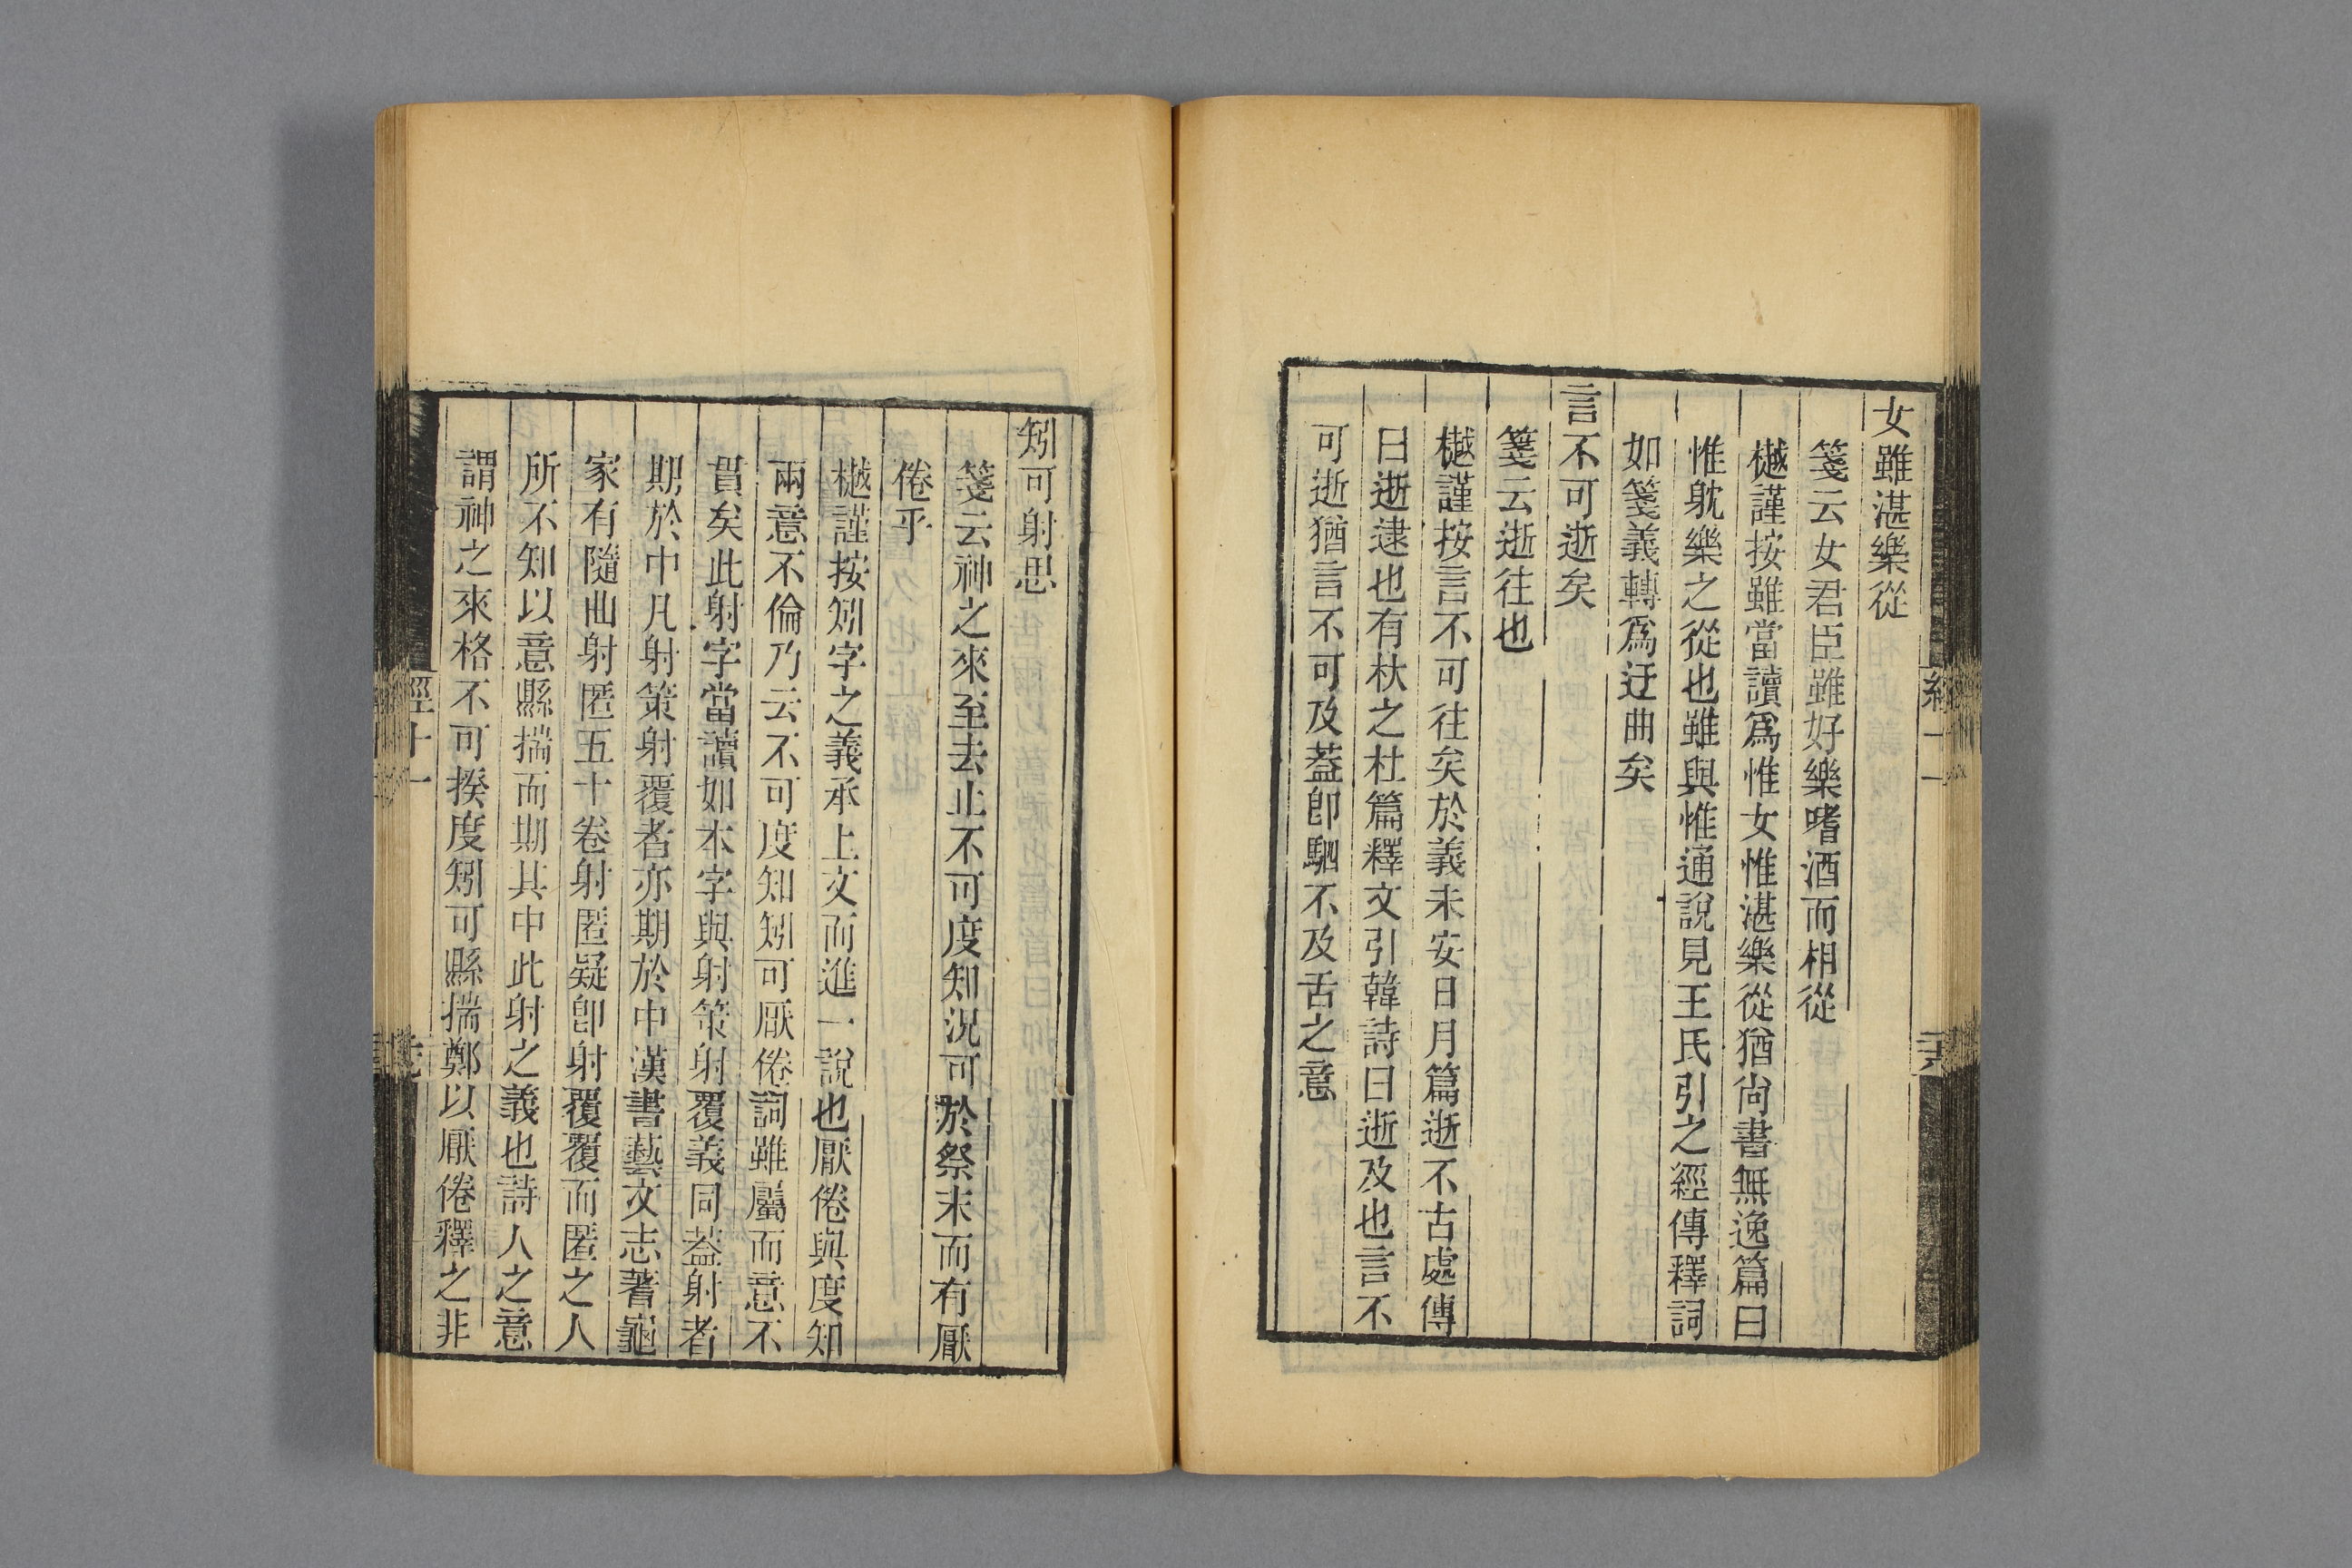 女雖湛樂從
箋云女君臣雖好樂嗜酒而相從
樾謹按雖當讀爲惟女惟湛樂從猶尙書無逸篇曰
惟躭樂之從也雖與惟通說見王氏引之經傳釋詞
如箋義轉爲迂曲矣
言不可逝矣
箋云逝往也
樾謹按言不可往矣於義未安日月篇逝不古處傳
曰逝逮也有杕之杜篇釋文引韓詩曰逝及也言不
可逝猶言不可及蓋卽駟不及舌之意
矧可射思
箋云神之來至去止不可度知況可於祭末而有厭
倦乎
樾謹按矧字之義承上文而進一說也厭倦與度知
兩意不倫乃云不可度知矧可厭倦詞雖屬而意不
貫矣此射字當讀如本字與射策射覆義同蓋射者
期於中凡射策射覆者亦期於中漢書藝文志蓍龜
家有隨曲射匿五十卷射匿疑卽射覆覆而匿之人
所不知以意縣揣而期其中此射之義也詩人之意
謂神之來格不可揆度矧可縣揣鄭以厭倦釋之非
經十一